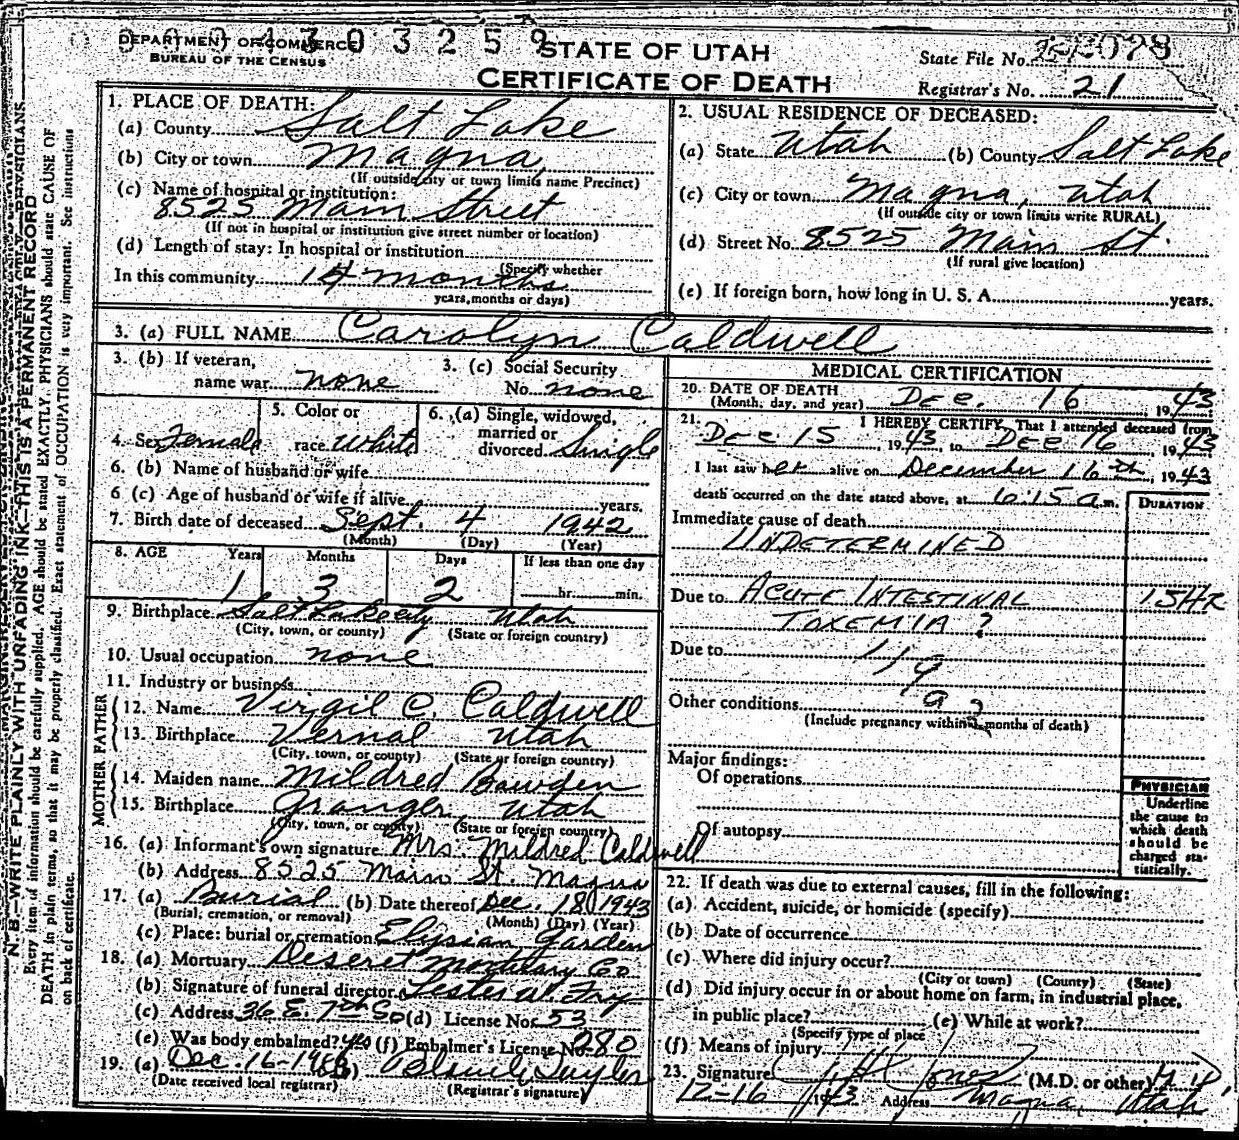 DEPARTMENT OF COMMERCE
BUREAU OF THE CENSUS
STATE OF UTAH
CERTIFICATE OF DEATH
State File No.
Registrar's No. 21
1. PLACE OF DEATH:
(a) County Salt Lake
(b) City or town Magna,
(If outside city or town limits name Precinct)
(c) Name of hospital or institution:
8525 Main Street
(If not in hospital or institution give street number or location)
(d) Length of stay: In hospital or institution
(Specify whether
In this community 14 months
years, months or days)
2. USUAL RESIDENCE OF DECEASED:
(a) State Utah (b) County Salt Lake
(c) City or town Magna, Utah
(If outside city or town limits write RURAL)
(d) Street No. 8525 Main St.
(If rural give location)
(e) If foreign born, how long in U. S. A. years.
3. (a) FULL NAME Carolyn Caldwell
3. (b) If veteran,
name war none
3. (c) Social Security
No. none
4. Sex Female
5. Color or
race White
6. (a) Single, widowed,
married or
divorced Single
6. (b) Name of husband or wife
6 (c) Age of husband or wife if alive years.
7. Birth date of deceased Sept. 4 1942
(Month) (Day) (Year)
8. AGE Years Months Days If less than one day
1 3 2 hr. min.
9. Birthplace Salt Lake City Utah
(City, town, or county) (State or foreign country)
10. Usual occupation none
11. Industry or business
FATHER
12. Name Virgil C. Caldwell
13. Birthplace Vernal Utah
(City, town, or county) (State or foreign country)
MOTHER
14. Maiden name Mildred Bawden
15. Birthplace Granger, Utah
(City, town, or county) (State or foreign country)
16. (a) Informant's own signature Mrs. Mildred Caldwell
(b) Address 8525 Main St. Magna
17. (a) Burial (b) Date thereof Dec. 18 1943
(Burial, cremation, or removal) (Month) (Day) (Year)
(c) Place: burial or cremation Elysian Garden
18. (a) Mortuary Deseret Mortuary Co
(b) Signature of funeral director Lester W. Fry
(c) Address 36 E. 7th So (d) License No. 53
(e) Was body embalmed? yes (f) Embalmer's License No. 280
19. (a) Dec. 16- (b)
(Date received local registrar) (Registrar's signature)
MEDICAL CERTIFICATION
20. DATE OF DEATH
(Month, day, and year) Dec. 16, 1943
21. I HEREBY CERTIFY, That I attended deceased from
Dec 15, 1943, to Dec 16, 1943
I last saw her alive on December 16th, 1943
death occurred on the date stated above, at a.m.
DURATION
Immediate cause of death
UNDETERMINED
Due to ACUTE INTESTINAL 15 HR
TOXEMIA ?
Due to 119
Other conditions a
(Include pregnancy within 3 months of death)
Major findings:
Of operations
Of autopsy
PHYSICIAN
Underline
the cause to
which death
should be
charged sta-
tistically.
22. If death was due to external causes, fill in the following:
(a) Accident, suicide, or homicide (specify)
(b) Date of occurrence
(c) Where did injury occur?
(City or town) (County) (State)
(d) Did injury occur in or about home on farm, in industrial place,
in public place? (e) While at work?
(Specify type of place
(f) Means of injury
23. Signature Jones (M.D. or other) M.D.
12-16 1943 Address Magna, Utah
N. B.—WRITE PLAINLY WITH UNFADING INK—THIS IS A PERMANENT RECORD
Every item of information should be carefully supplied. AGE should be stated EXACTLY. PHYSICIANS should state CAUSE OF
DEATH in plain terms, so that it may be properly classified. Exact statement of OCCUPATION is very important. See instructions
on back of certificate.